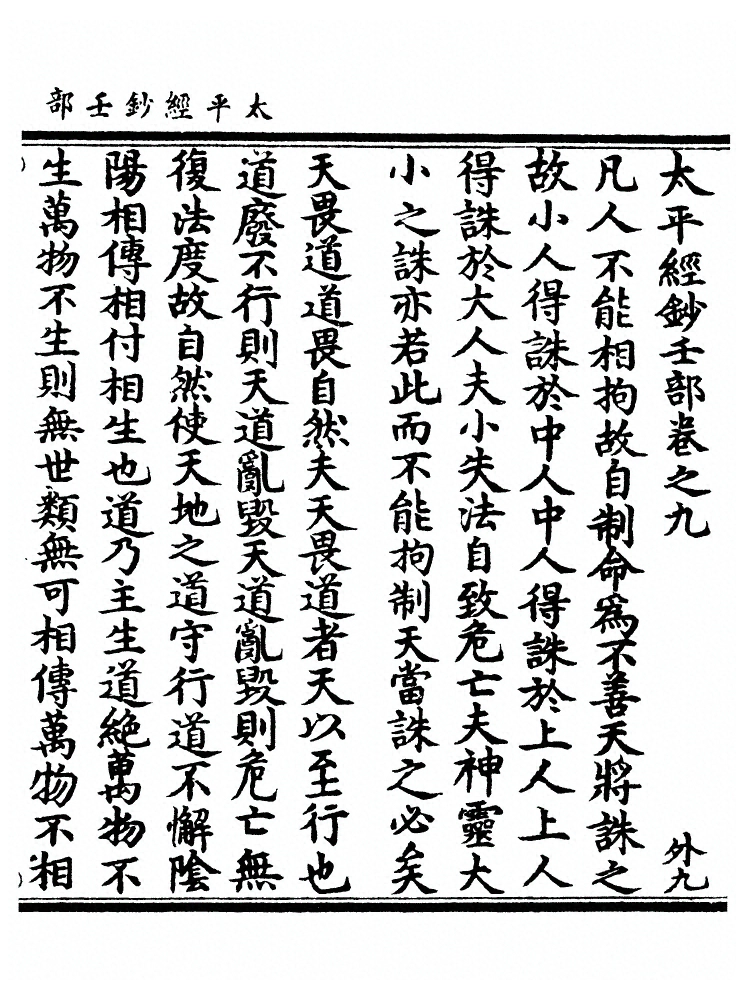 太平經鈔壬部
太平經鈔壬部卷之九 外九
凡人不能相拘故自制命爲不善天將誅之
故小人得誅於中人中人得誅於上人上人
得誅於大人夫小失法自致危亡夫神靈大
小之誅亦若此而不能拘制天當誅之必矣
天畏道道畏自然夫天畏道者天以至行也
道廢不行則天道亂毀天道亂毀則危亡無
復法度故自然使天地之道守行道不懈陰
陽相傳相付相生也道乃主生道絶萬物不
生萬物不生則無世類無可相傳萬物不相